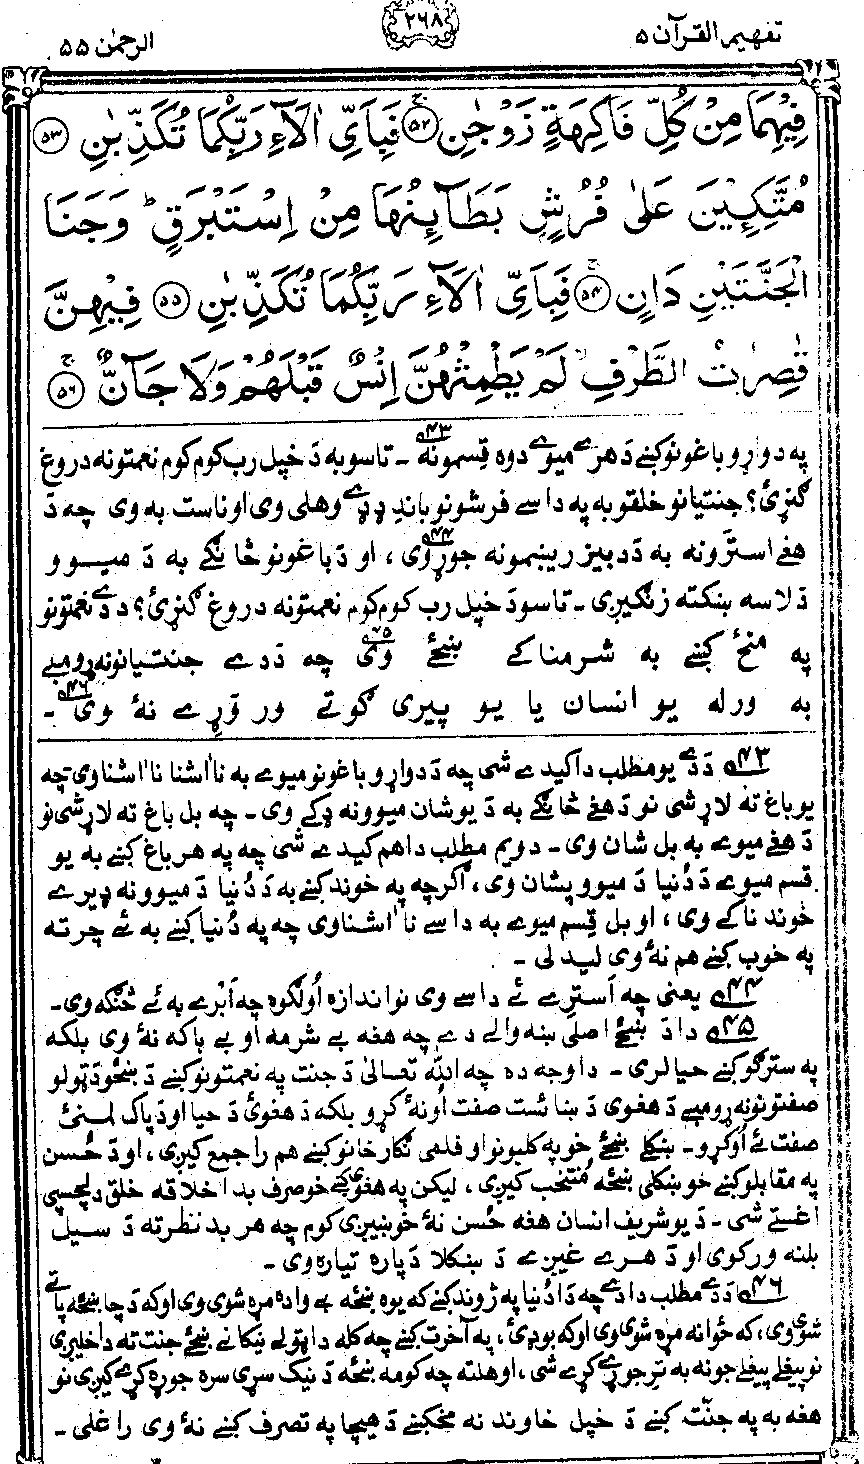 تفهيم القرآن ۵
۲۶۸
الرحمٰن ۵۵
فِيْهِمَا مِنْ كُلِّ فَاكِهَةٍ زَوْجٰنِ ۚ ﴿۵۲﴾ فَبِاَىِّ اٰلَآءِ رَبِّكُمَا تُكَذِّبٰنِ ﴿۵۳﴾
مُتَّكِـِٕيْنَ عَلٰى فُرُشٍۭ بَطَآئِنُهَا مِنْ اِسْتَبْرَقٍ ؕ وَجَنَا
الْجَنَّتَيْنِ دَانٍ ۚ ﴿۵۴﴾ فَبِاَىِّ اٰلَآءِ رَبِّكُمَا تُكَذِّبٰنِ ﴿۵۵﴾ فِيْهِنَّ
قٰصِرٰتُ الطَّرْفِ ۙ لَمْ يَطْمِثْهُنَّ اِنْسٌ قَبْلَهُمْ وَلَا جَآنٌّ ۚ ﴿۵۶﴾
په دواړو باغونو کښے دَ هرے ميوے دوه قِسمونه ۴۳ ـ تاسو به دَ خپل رب کوم کوم نعمتونه دروغ
ګنړئ؟ جنتيانو خلقو به په داسے فرشونو باندِ ډډے وهلى وى او ناست به وى چه دَ
هغے استَرونه به دَ دبيز ريښمونه جوړ وى ۴۴، او دَ باغونو څانګے به دَ ميوو
دَ لاسه ښکته زنګيږى ـ تاسو دَ خپل رب کوم کوم نعمتونه دروغ ګنړئ؟ دَ دے نعمتونو
په منځ کښے به شرمناکے ښځے وى ۴۵ چه دَ دے جنتيانو نه ړومبے
به ورله يو انسان يا يو پيرى ګوتے ور وَړے نهٔ وى ۴۶ ـ
۴۳ دَ دے يو مطلب دا کيدے شى چه دَ دواړو باغونو ميوے به نا اشنا نا اشنا وى چه
يو باغ ته لاړ شى نو دَ هغے څانګے به دَ يو شان ميوو نه ډکے وى ـ چه بل باغ ته لاړ شى نو
دَ هغے ميوے به بل شان وى ـ دويم مطلب دا هم کيدے شى چه په هر باغ کښے به يو
قسم ميوے دَ دُنيا دَ ميوو پشان وى، اګرچه په خوند کښے به دَ دُنيا دَ ميوو نه ډيرے
خوند ناکے وى، او بل قِسم ميوے به داسے نا اشنا وى چه په دُنيا کښے به ئے چرته
په خوب کښے هم نهٔ وى ليدلى ـ
۴۴ يعنى چه اَسترے ئے داسے وى نو اندازه اُولګوه چه اَبرے به ئے څنګه وى ـ
۴۵ دا دَ ښځے اصلى ښه والے دے چه هغه بے شرمه او بے باکه نهٔ وى بلکه
په سترګو کښے حيا لرى ـ دا وجه ده چه الله تعالىٰ دَ جنت په نعمتونو کښے دَ ښځو دَ ټولو
صفتونو نه ړومبے دَ هغوى دَ ښائست صفت اُونهٔ کړو بلکه دَ هغوئ دَ حيا او دَ پاک لمنئ
صفت ئے اُوکړو ـ ښکلے ښځے خو په کلبونو او فلمى نګار خانو کښے هم را جمع کيږى، او دَ حُسن
په مقابلو کښے خو ښکلى ښځه مُنتخب کيږى، ليکن په هغوئ کښے خو صرف بد اخلاقه خلق دلچسپى
اغستے شى ـ دَ يو شريف انسان هغه حُسن نهٔ خوښيږى کوم چه هر بد نظر ته دَ سيل
بلنه ورکوى او دَ هرے غيږے دَ ښکلا دَ پاره تياره وى ـ
۴۶ دَ دے مطلب دا دے چه دَ دُنيا په ژوند کښے که يوه ښځه بے واده مړه شوى وى او که دَ چا ښځه پاتے
شوى وى، که ځوانه مړه شوى وى او که بوډئ، په آخرت کښے چه کله دا ټولے نيکانے ښځے جنت ته داخليږى
نو پيغلے پيغلے جونه به تر جوړے کړے شى، او هلته چه کومه ښځه دَ نيک سړى سره جوړه کړے کيږى نو
هغه به په جنّت کښے دَ خپل خاوند نه مخکښے دَ هيچا په تصرف کښے نهٔ وى را غلى ـ